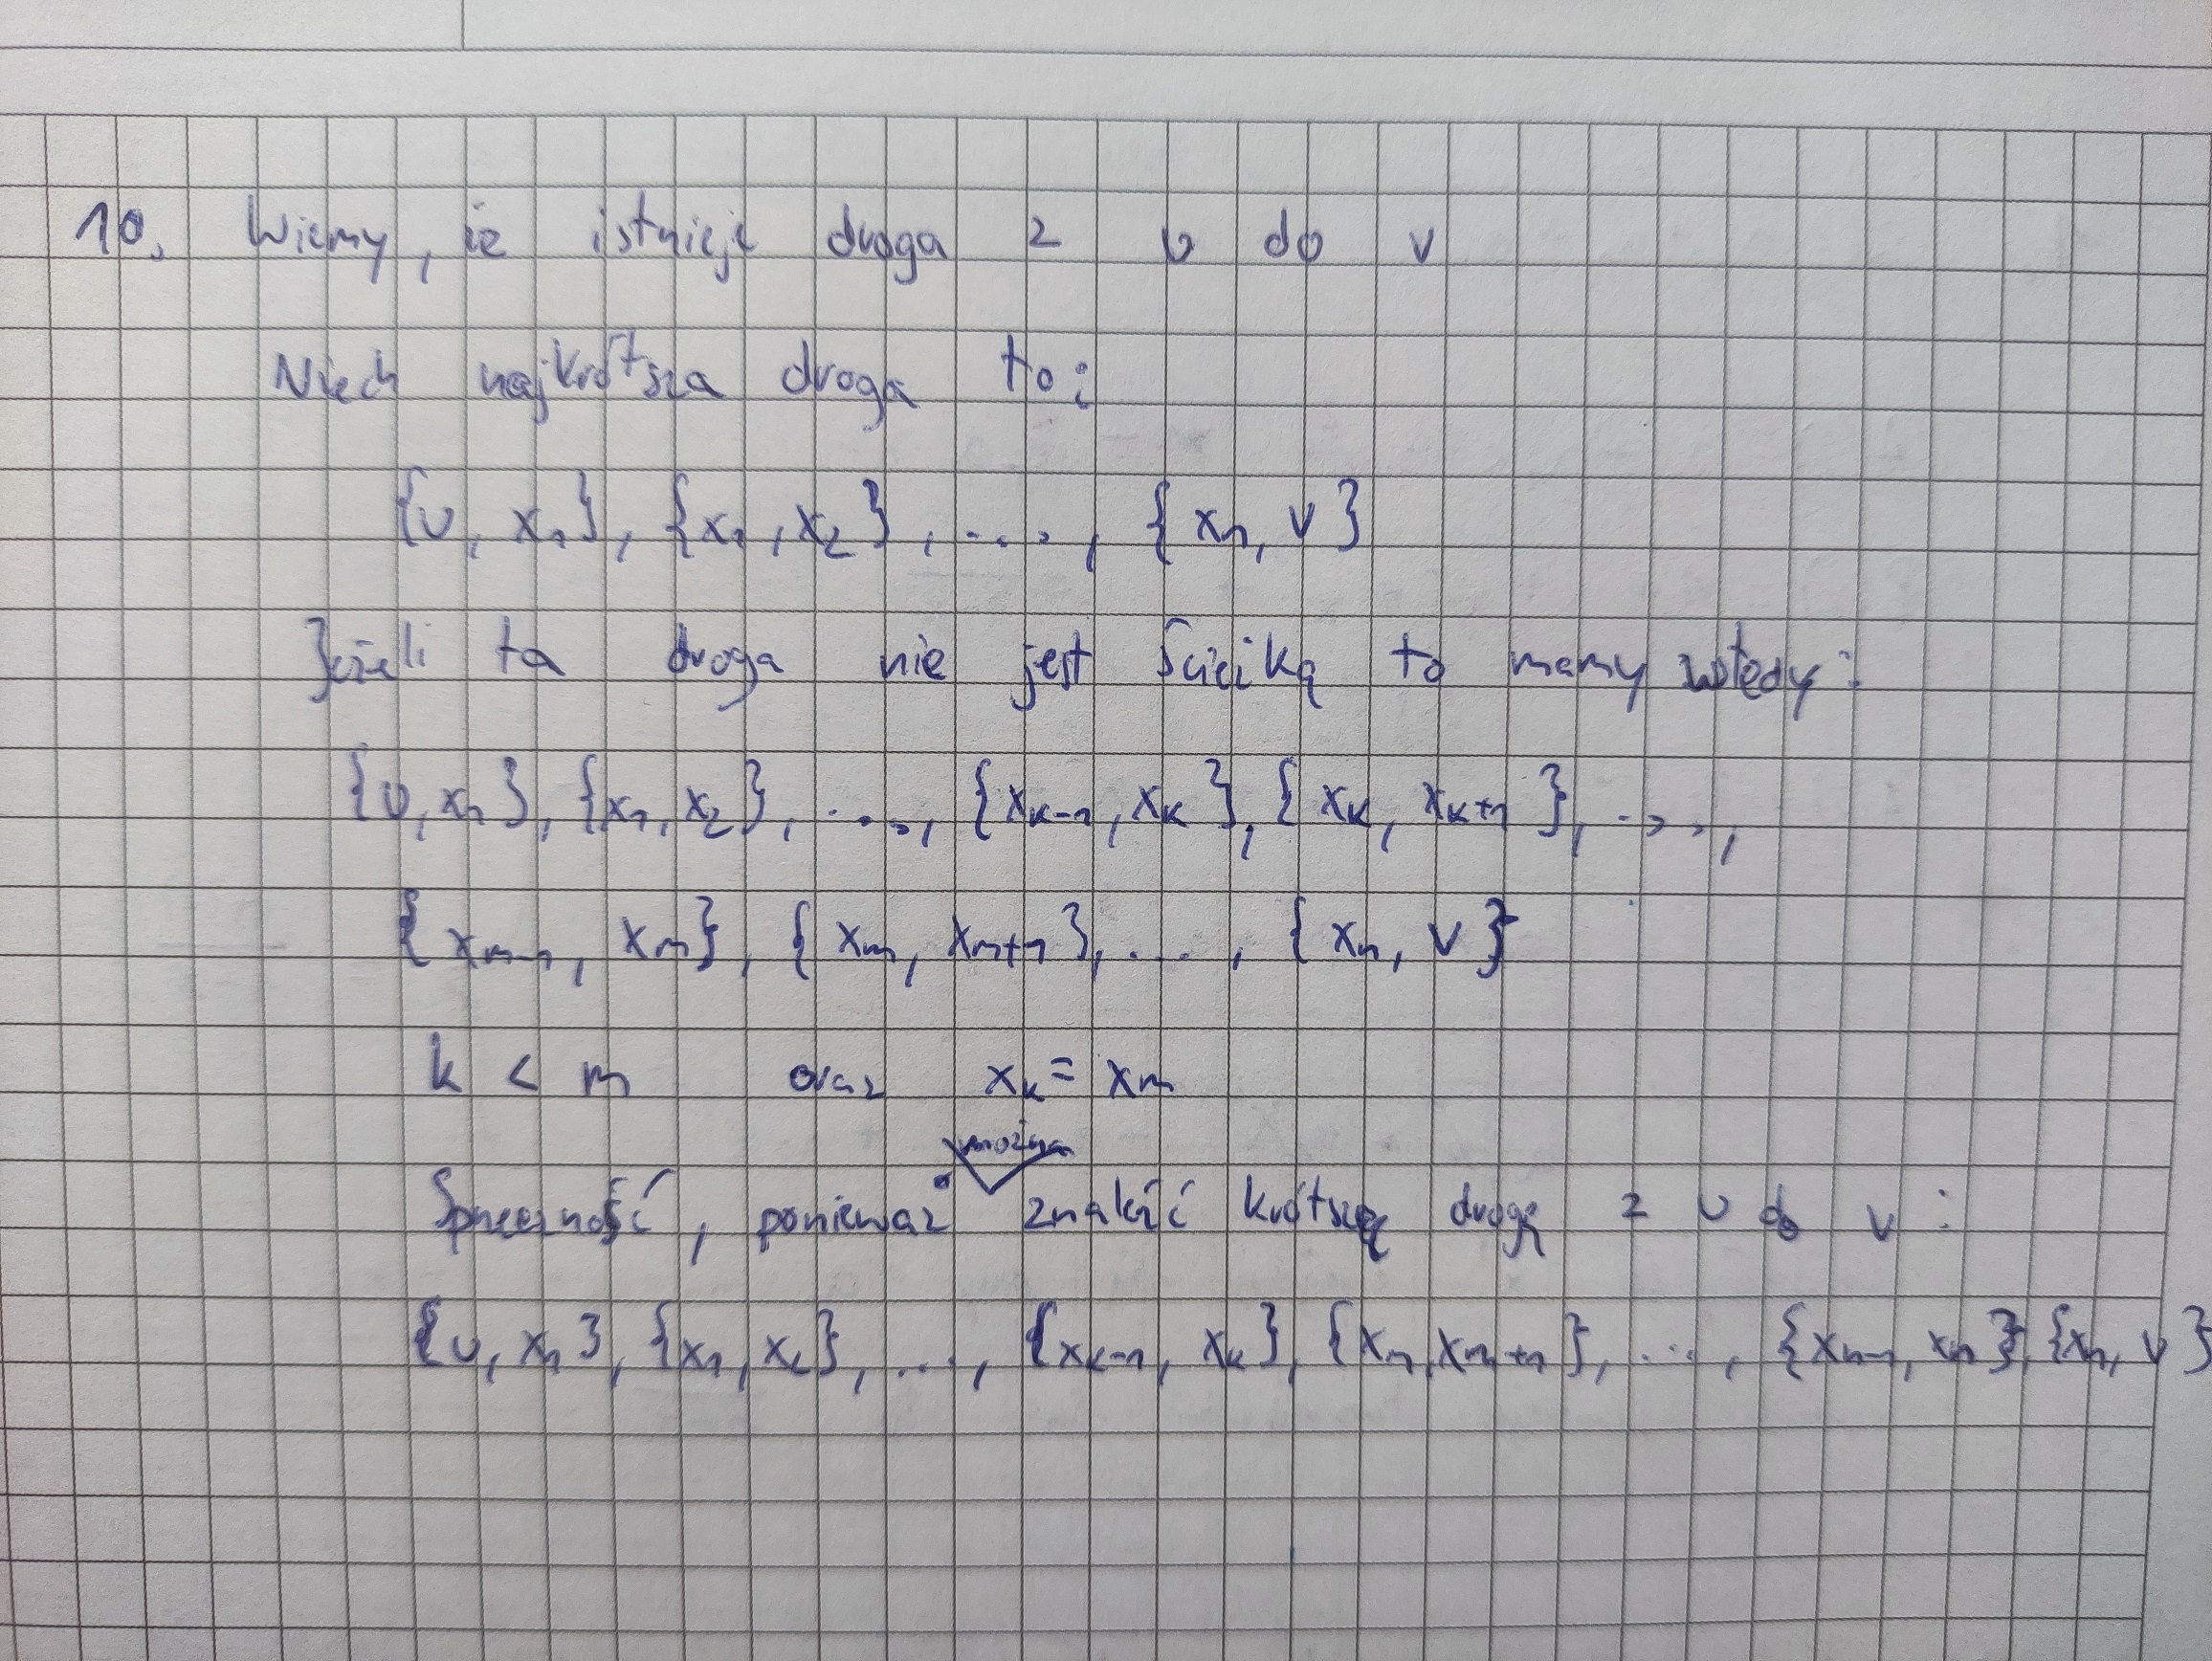 10. Wiemy, że istnieje droga z u do v
Niech najkrótsza droga to:
{u, x₁}, {x₁, x₂}, ..., {xₙ, v}
Jeżeli ta droga nie jest ścieżką to mamy wtedy:
{u, x₁}, {x₁, x₂}, ..., {xₖ₋₁, xₖ}, {xₖ, xₖ₊₁}, ...,
{xₘ₋₁, xₘ}, {xₘ, xₘ₊₁}, ..., {xₙ, v}
k < m oraz xₖ = xₘ
można
Sprzeczność, ponieważ znaleźć krótszą drogę z u do v:
{u, x₁}, {x₁, x₂}, ..., {xₖ₋₁, xₖ}, {xₘ, xₘ₊₁}, ..., {xₙ₋₁, xₙ}, {xₙ, v}